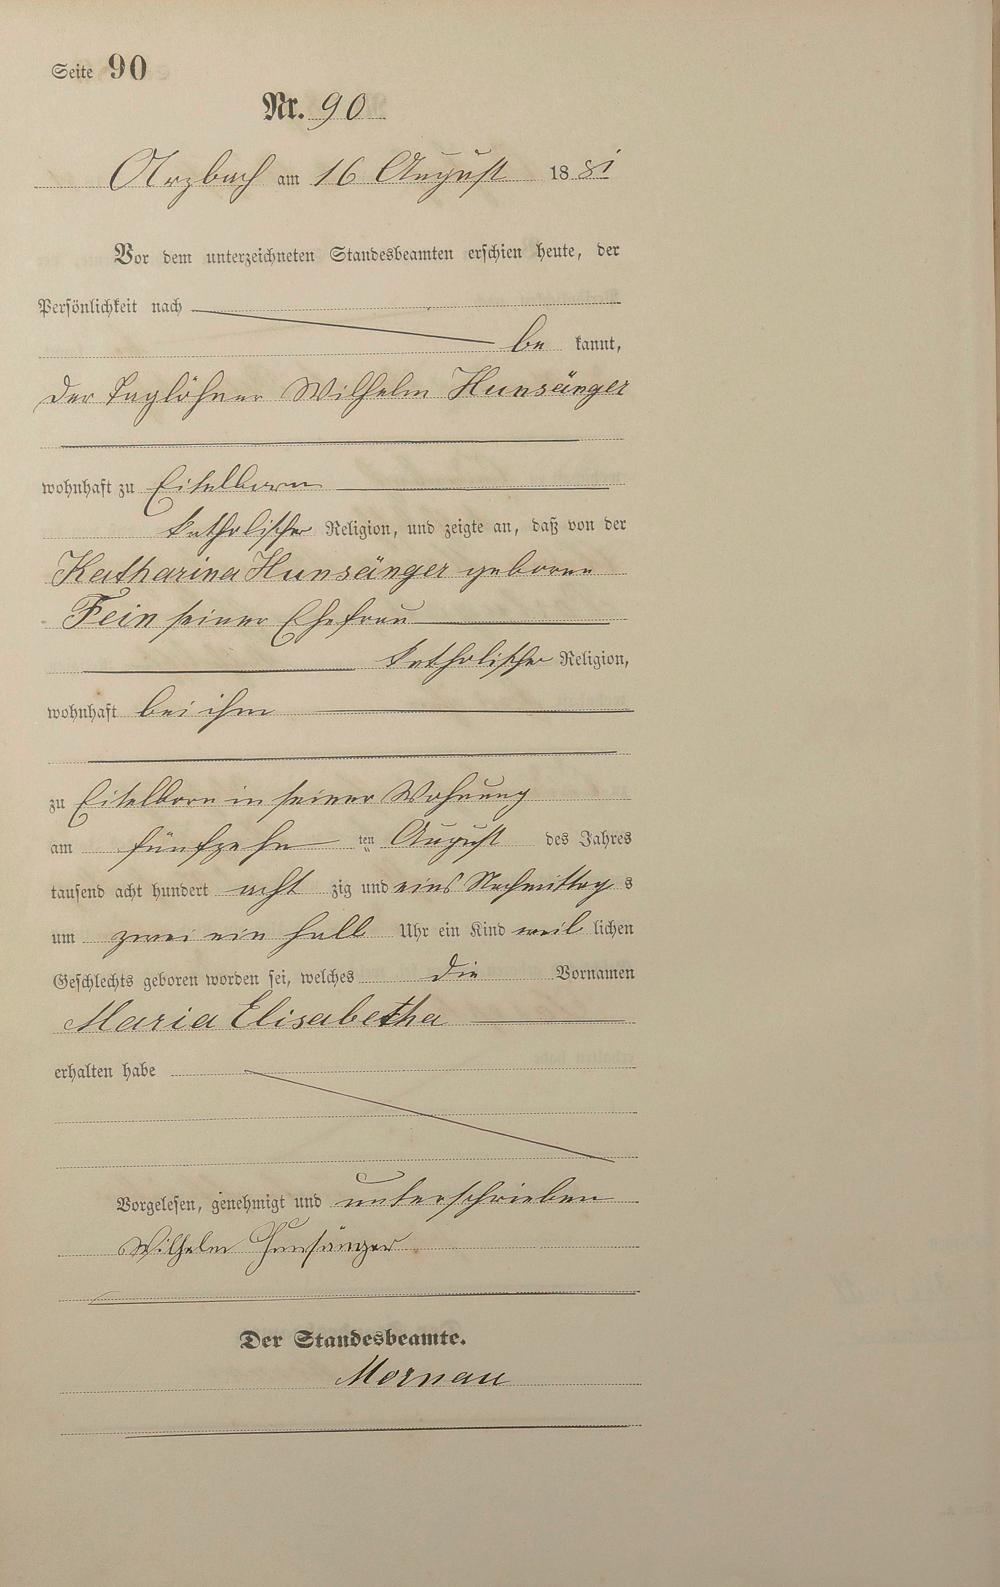 Seite 90
Nr. 90
Arzbach am 16 August 1881
Vor dem unterzeichneten Standesbeamten erschien heute, der
Persönlichkeit nach
be kannt,
der Taglöhner Wilhelm Hunsänger
wohnhaft zu Eitelborn
katholischer Religion, und zeigte an, daß von der
Katharina Hunsänger geborene
Fein seiner Ehefrau
katholischer Religion,
wohnhaft bei ihm
zu Eitelborn in seiner Wohnung
am fünfzehn ten August des Jahres
tausend acht hundert acht zig und eins Nachmittag s
um zwei ein halb Uhr ein Kind weib lichen
Geschlechts geboren worden sei, welches die Vornamen
Maria Elisabetha
erhalten habe
Vorgelesen, genehmigt und unterschrieben
Wilhelm Hunsänger
Der Standesbeamte.
Mornau